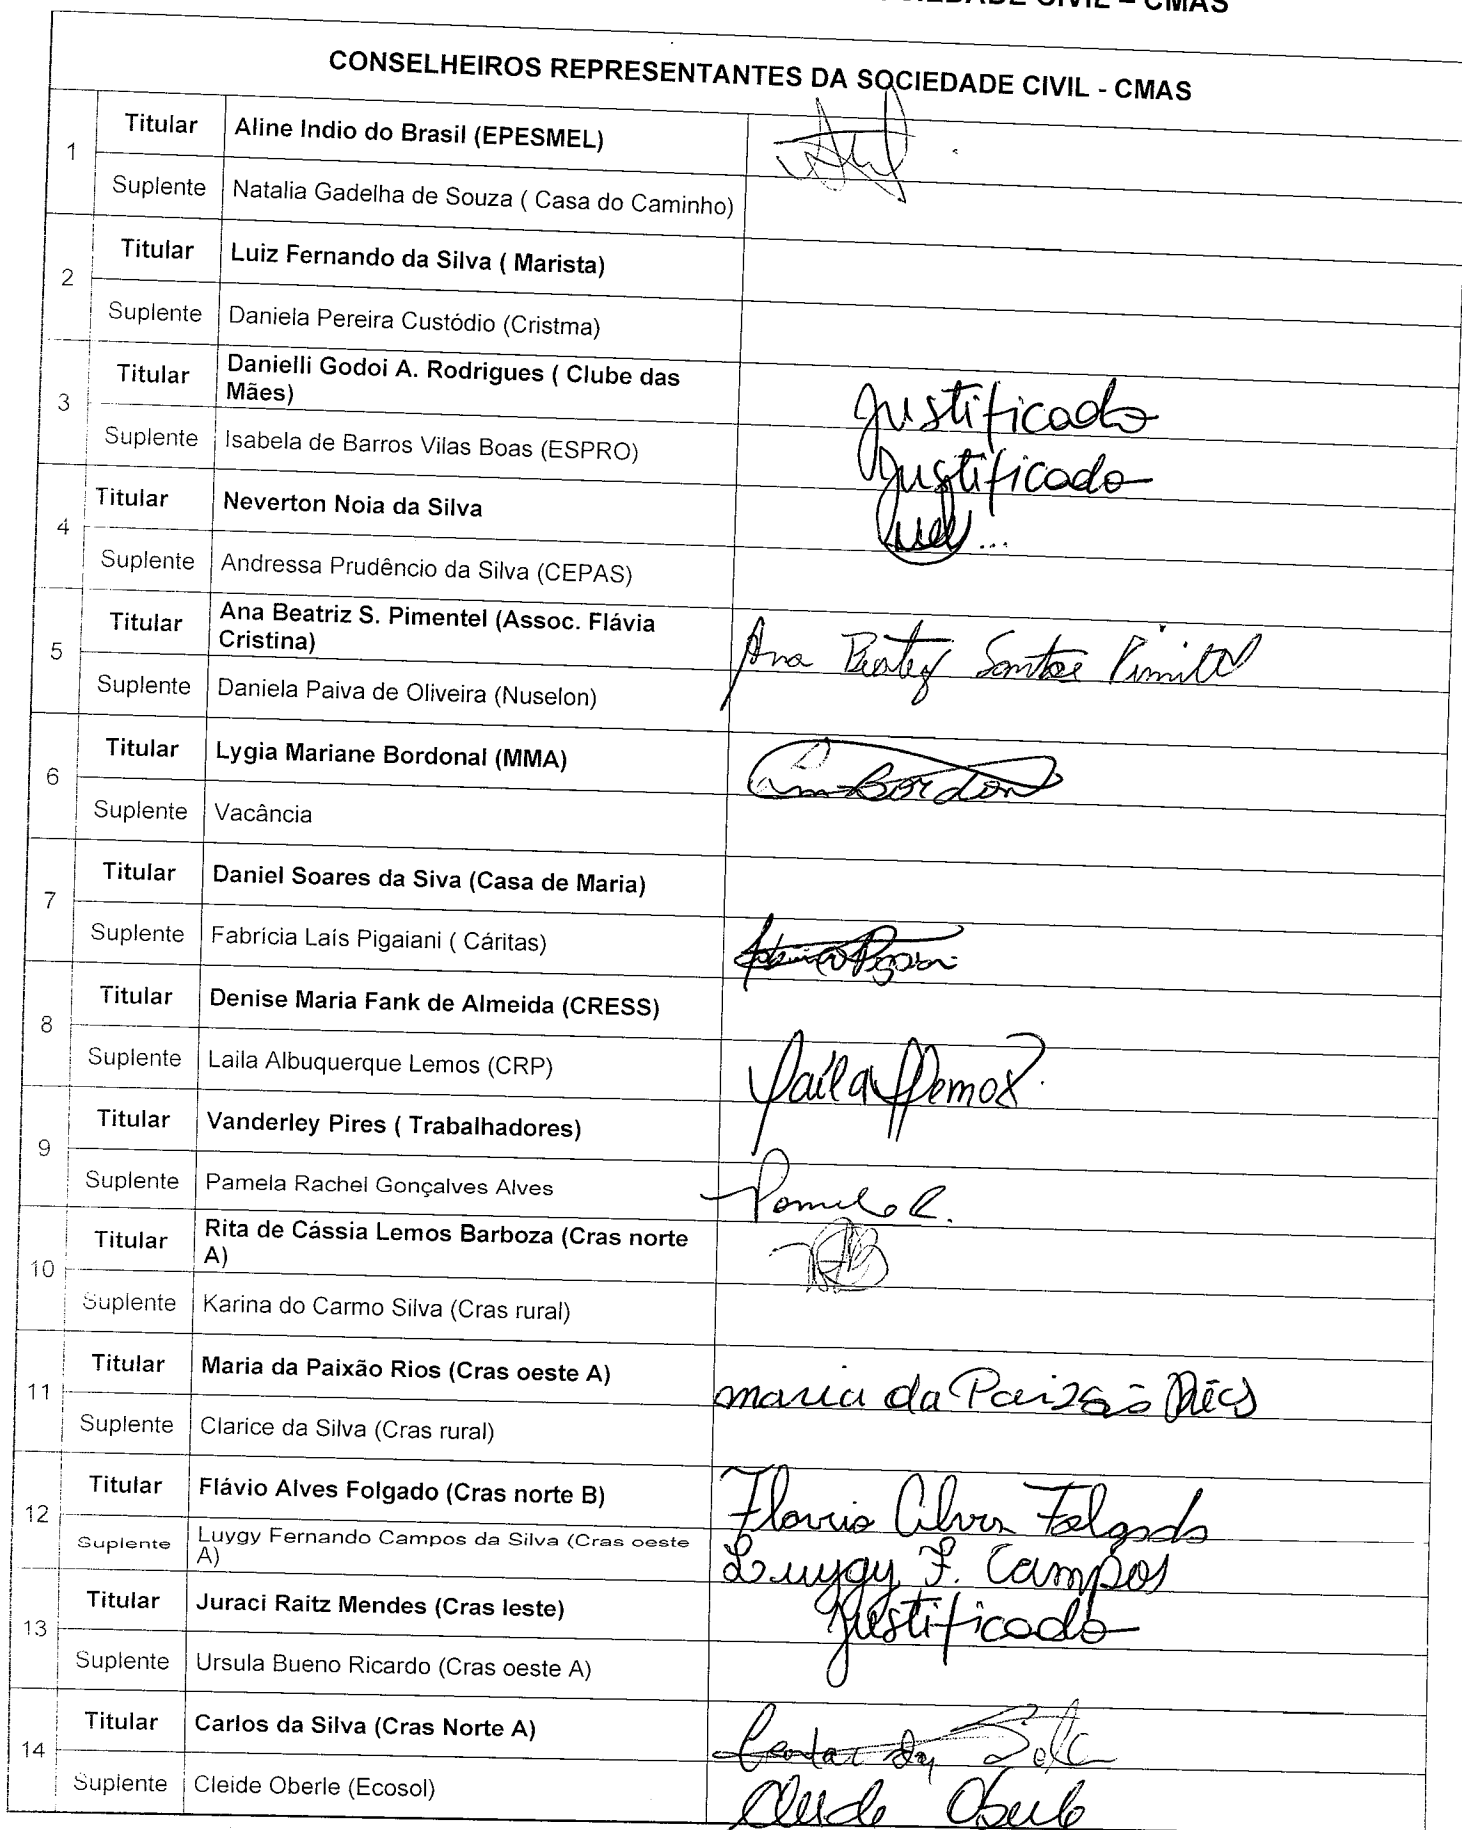 CIVIL – CMAS
CONSELHEIROS REPRESENTANTES DA SOCIEDADE CIVIL - CMAS
1
Titular Aline Indio do Brasil (EPESMEL)
Suplente Natalia Gadelha de Souza ( Casa do Caminho)
2
Titular Luiz Fernando da Silva ( Marista)
Suplente Daniela Pereira Custódio (Cristma)
3
Titular Danielli Godoi A. Rodrigues ( Clube das
Mães) Justificado
Suplente Isabela de Barros Vilas Boas (ESPRO) Justificado
4
Titular Neverton Noia da Silva
Suplente Andressa Prudêncio da Silva (CEPAS)
5
Titular Ana Beatriz S. Pimentel (Assoc. Flávia
Cristina) Ana Beatriz Santos Pimentel
Suplente Daniela Paiva de Oliveira (Nuselon)
6
Titular Lygia Mariane Bordonal (MMA)
Suplente Vacância
7
Titular Daniel Soares da Siva (Casa de Maria)
Suplente Fabrícia Laís Pigaiani ( Cáritas)
8
Titular Denise Maria Fank de Almeida (CRESS)
Suplente Laila Albuquerque Lemos (CRP) Laila Lemos
9
Titular Vanderley Pires ( Trabalhadores)
Suplente Pamela Rachel Gonçalves Alves Pamela R.
10
Titular Rita de Cássia Lemos Barboza (Cras norte
A)
Suplente Karina do Carmo Silva (Cras rural)
11
Titular Maria da Paixão Rios (Cras oeste A) maria da Paixão Rios
Suplente Clarice da Silva (Cras rural)
12
Titular Flávio Alves Folgado (Cras norte B) Flavio Alves Folgado
Suplente Luygy Fernando Campos da Silva (Cras oeste
A) Luygy F. Campos
13
Titular Juraci Raitz Mendes (Cras leste) Justificado
Suplente Ursula Bueno Ricardo (Cras oeste A)
14
Titular Carlos da Silva (Cras Norte A) Carlos da Silva
Suplente Cleide Oberle (Ecosol) Cleide Oberle